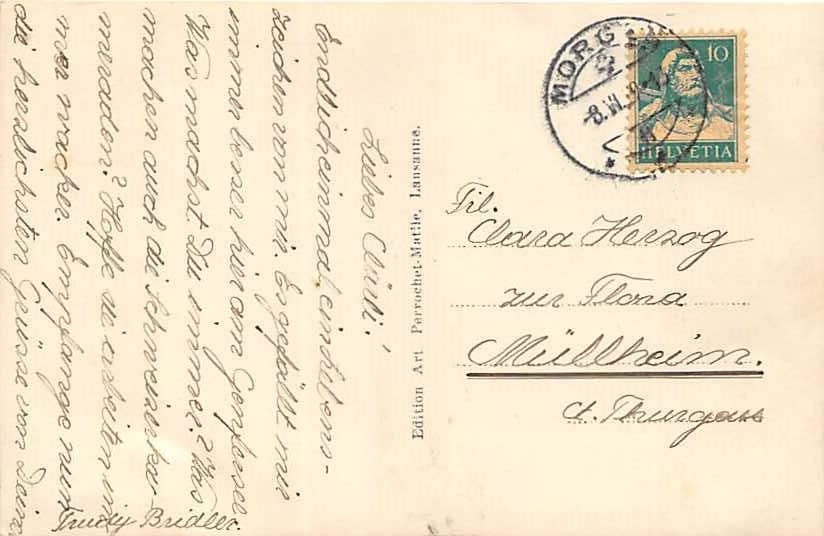 Liebes Clärli!
Endlich einmal ein Lebens-
zeichen von mir. Es gefällt mir
immer besser hier am Genfersee
Was machst Du immer? Was
machen auch die Schweizerka-
meraden? Hoffe sie arbeiten im
mer wacker. Empfange nun
die herzlichsten Grüsse von Deine
Trudy Bridler.
Edition Art Perrochet-Matile, Lausanne.
MORGES
-8.VI.
10
HELVETIA
Frl.
Clara Herzog
zur Flora
Müllheim.
Ct. Thurgau